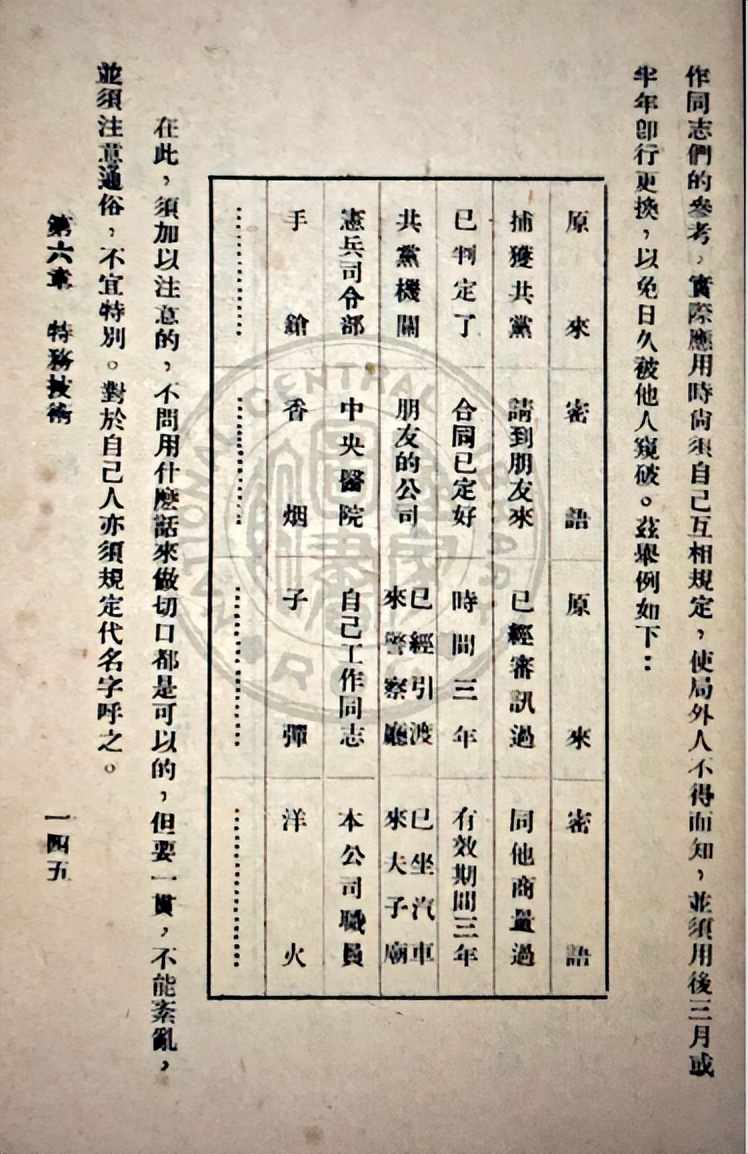 作同志們的參考，實際應用時尙須自己互相規定，使局外人不得而知，並須用後三月或
半年卽行更換，以免日久被他人窺破。茲舉例如下：
原來 密語 原來 密語
捕獲共黨 請到朋友來 已經審訊過 同他商量過
已判定了 合同已定好 時間三年 有效期間三年
共黨機關 朋友的公司 已經引渡來警察廳 已坐汽車來夫子廟
憲兵司令部 中央醫院 自己工作同志 本公司職員
手鎗 香烟 子彈 洋火
………… ………… ………… …………
在此，須加以注意的，不問用什麽話來做切口都是可以的，但要一貫，不能紊亂，
並須注意通俗，不宜特別。對於自己人亦須規定代名字呼之。
第六章 特務技術 一四五
NATIONAL CENTRAL LIBRARY
R.O.C.
國家圖書館